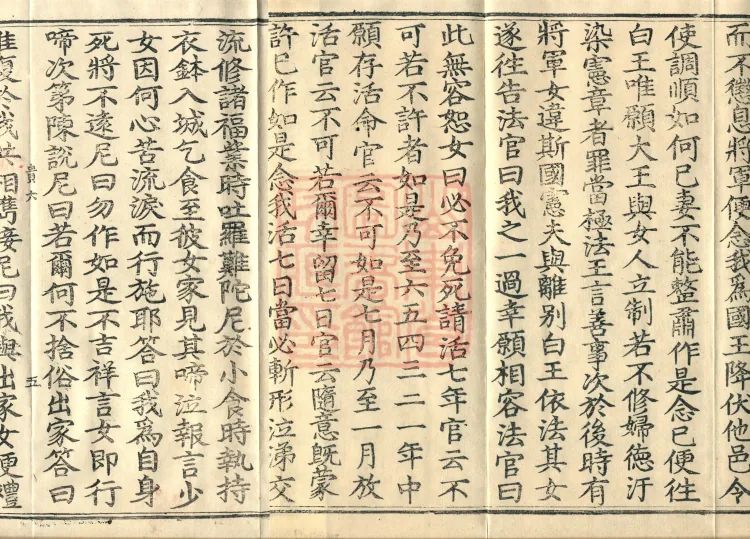 而不懲息將軍便念我為國王降伏他邑令
使調順如何已妻不能整肅作是念已便往
白王唯願大王與女人立制若不修婦德汙
染憲章者罪當極法王言善事次於後時有
將軍女違斯國憲夫與離別白王依法其女
遂往告法官曰我之一過幸願相容法官曰
此無容恕女曰必不免死請活七年官云不
可若不許者如是乃至六五四三二一年中
願存活命官云不可如是七月乃至一月放
活官云不可若爾幸留七日官云隨意旣蒙
許已作如是念我活七日當必斬形泣涕交
流修諸福業時吐羅難陀尼於小食時執持
衣鉢入城乞食至彼女家見其啼泣報言少
女因何心苦流淚而行施耶答曰我爲自身
死將不遠尼曰勿作如是不吉祥言女即行
啼次第陳說尼曰若爾何不捨俗出家答曰
六 五
復於我相攜接尼曰我與出家女便禮